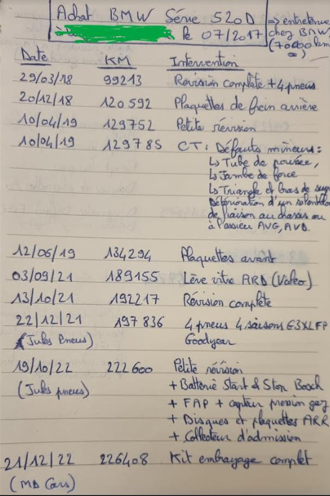 Achat BMW Série 520D
le 07/2017
=> entretenue
chez BMW
(70000 km)
Date KM Intervention
29/03/18 99213 Révision complète + 4 pneus
20/12/18 120592 Plaquettes de frein arrière
10/04/19 129752 Petite révision
10/04/19 129785 CT: Défauts mineurs:
↳ Tube de poussée,
↳ Jambe de force
↳ Triangle et bras de susp
Détérioration d'un silentbloc
de liaison au chassis ou
à l'essieu AVG, AVD.
12/06/19 134294 Plaquettes avant
03/09/21 189155 Lève vitre ARD (Valeo)
13/10/21 192217 Révision complète
22/12/21 197836 4 pneus 4 saisons
(Jules Pneus) Goodyear
19/10/22 222600 Petite révision
(Jules pneus) + Batterie Start & Stop Bosch
+ FAP + capteur pression gaz
+ Disques et plaquettes ARR
+ Collecteur d'admission
21/12/22 226408 Kit embrayage complet
(MB Cars)